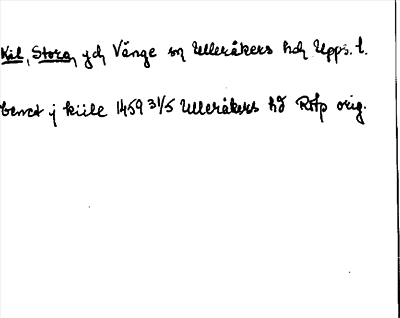 Kil, Stora, gd, Vänge sn Ulleråkers hd, Upps. l.
benct j kiile 1459 31/5 Ulleråkers hd RAp orig.